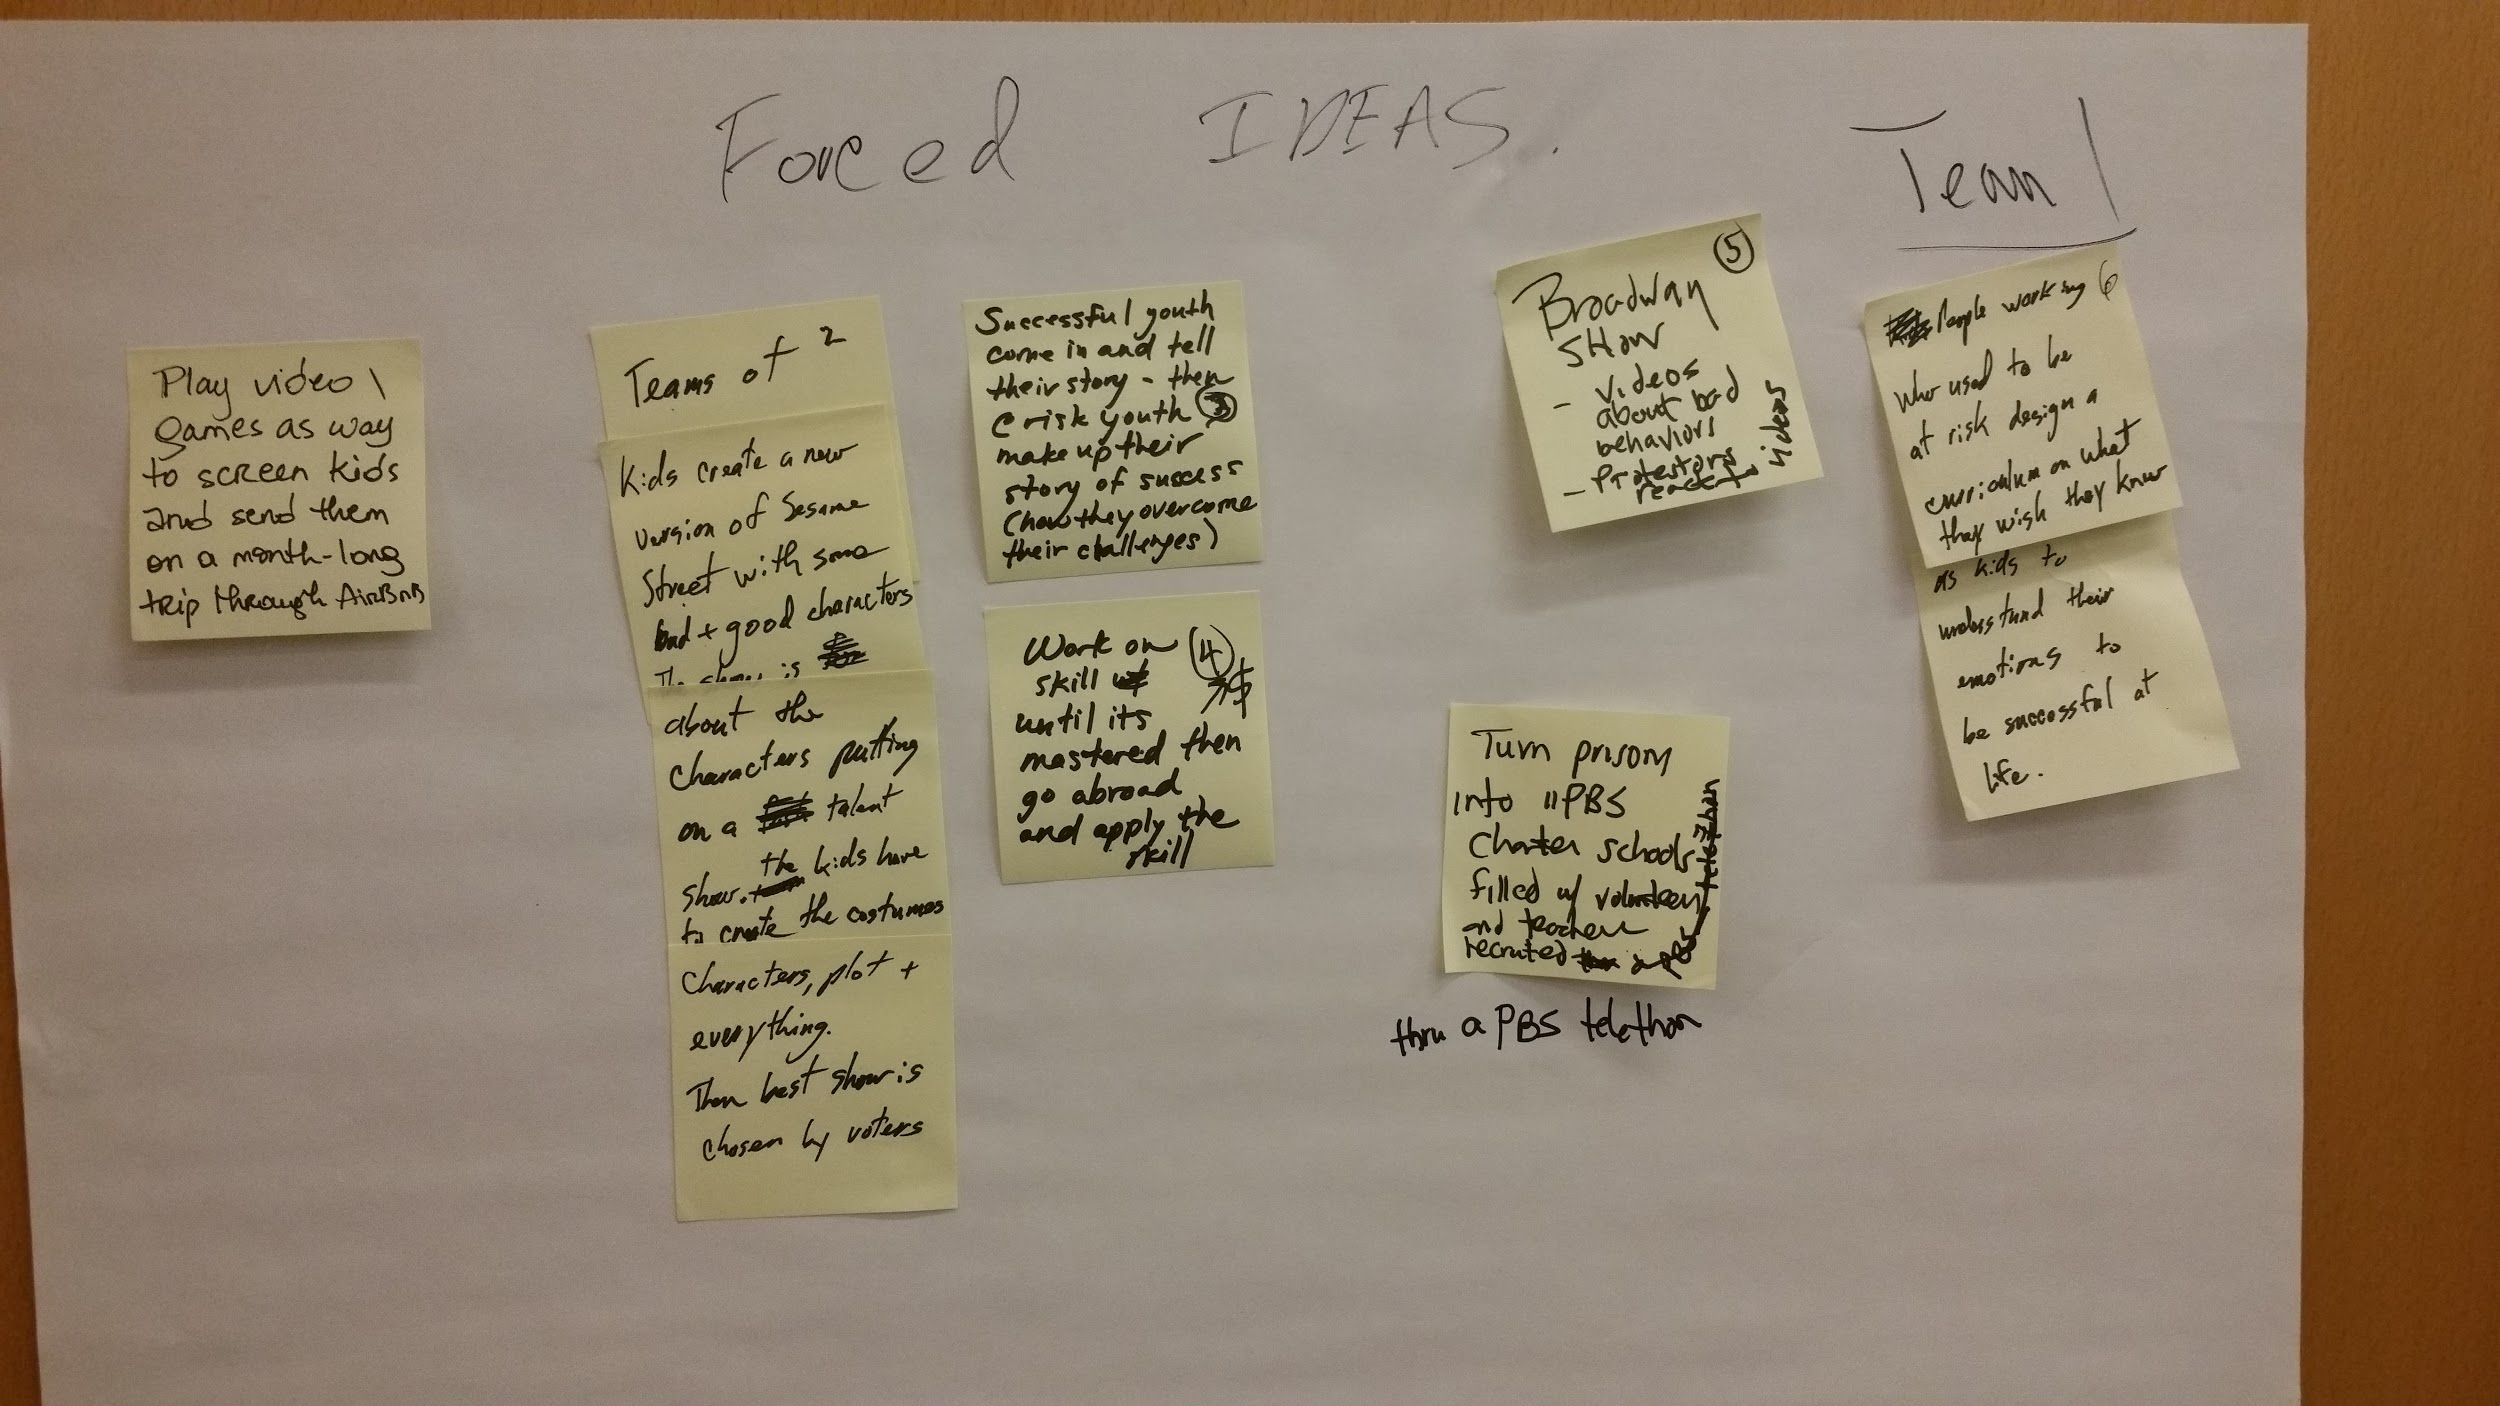 Forced IDEAS.
Team 1
Play video 1
games as way
to screen kids
and send them
on a month-long
trip through AirBnB
Teams of 2
Kids create a new
version of Sesame
Street with some
bad + good characters
The show is
about the
characters putting
on a talent
show. the kids have
to create the costumes
characters, plot +
everything.
Then best show is
chosen by voters
Successful youth
come in and tell
their story - then
@ risk youth 3
make up their
story of success
(how they overcome
their challenges)
Work on 4
skill
until its
mastered then
go abroad
and apply the
skill
Broadway 5
SHOW
- Videos
about bad
behaviors
- Protestors
react to videos
Turn prisons
into "PBS
Charter schools
filled w/ volunteers
and teachers
recruited
telethon
thru a PBS telethon
People working 6
who used to be
at risk design a
curriculum on what
they wish they knew
as kids to
understand their
emotions to
be successful at
life.